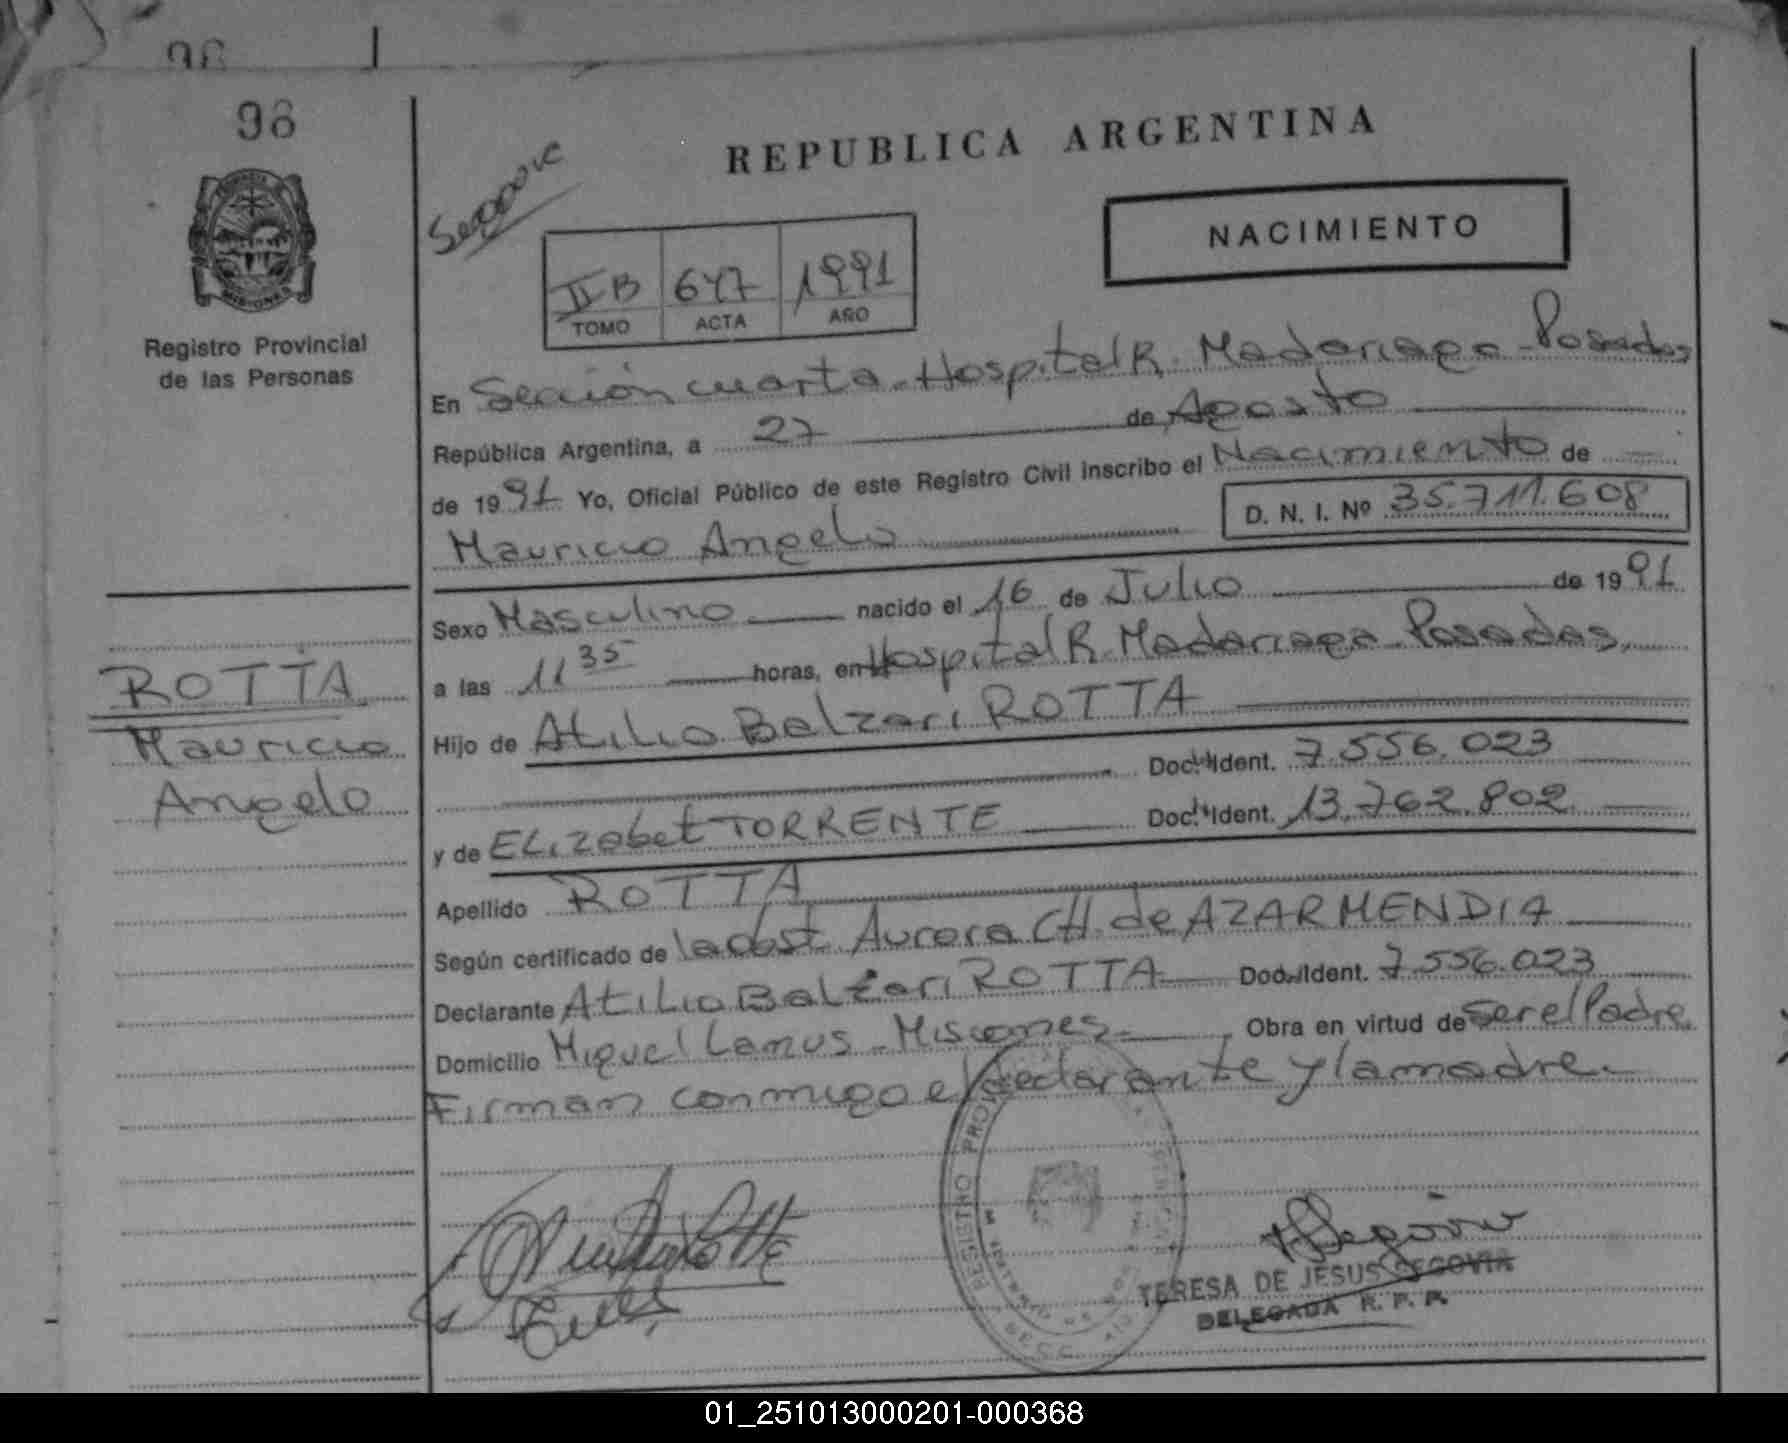 98
98
REPUBLICA ARGENTINA
NACIMIENTO
II B 647 1991
TOMO ACTA AÑO
MISIONES
Registro Provincial
de las Personas
En Sección cuarta - Hospital R. Madariaga - Posadas
República Argentina, a 27 de Agosto
de 1991 Yo, Oficial Público de este Registro Civil inscribo el Nacimiento de
Mauricio Angelo D. N. I. Nº 35.711.608
Sexo Masculino nacido el 16 de Julio de 1991
a las 11 35 horas, en Hospital R. Madariaga - Posadas,
Hijo de Atilio Balzari ROTTA
Doc. Ident. 7.556.023
y de ELizabet TORRENTE Doc. Ident. 13.762.802
Apellido ROTTA
Según certificado de la obst. Aurora CH. de AZARMENDIA
Declarante Atilio Balzari ROTTA Doc. Ident. 7.556.023
Domicilio Miguel Lanus - Misiones - Obra en virtud de Ser el Padre.
Firman conmigo el declarante y la madre.-
ROTTA
Mauricio
Angelo
REGISTRO PRO
TERESA DE JESUS SEGOVIA
DELEGADA R. P. P.
01_251013000201-000368